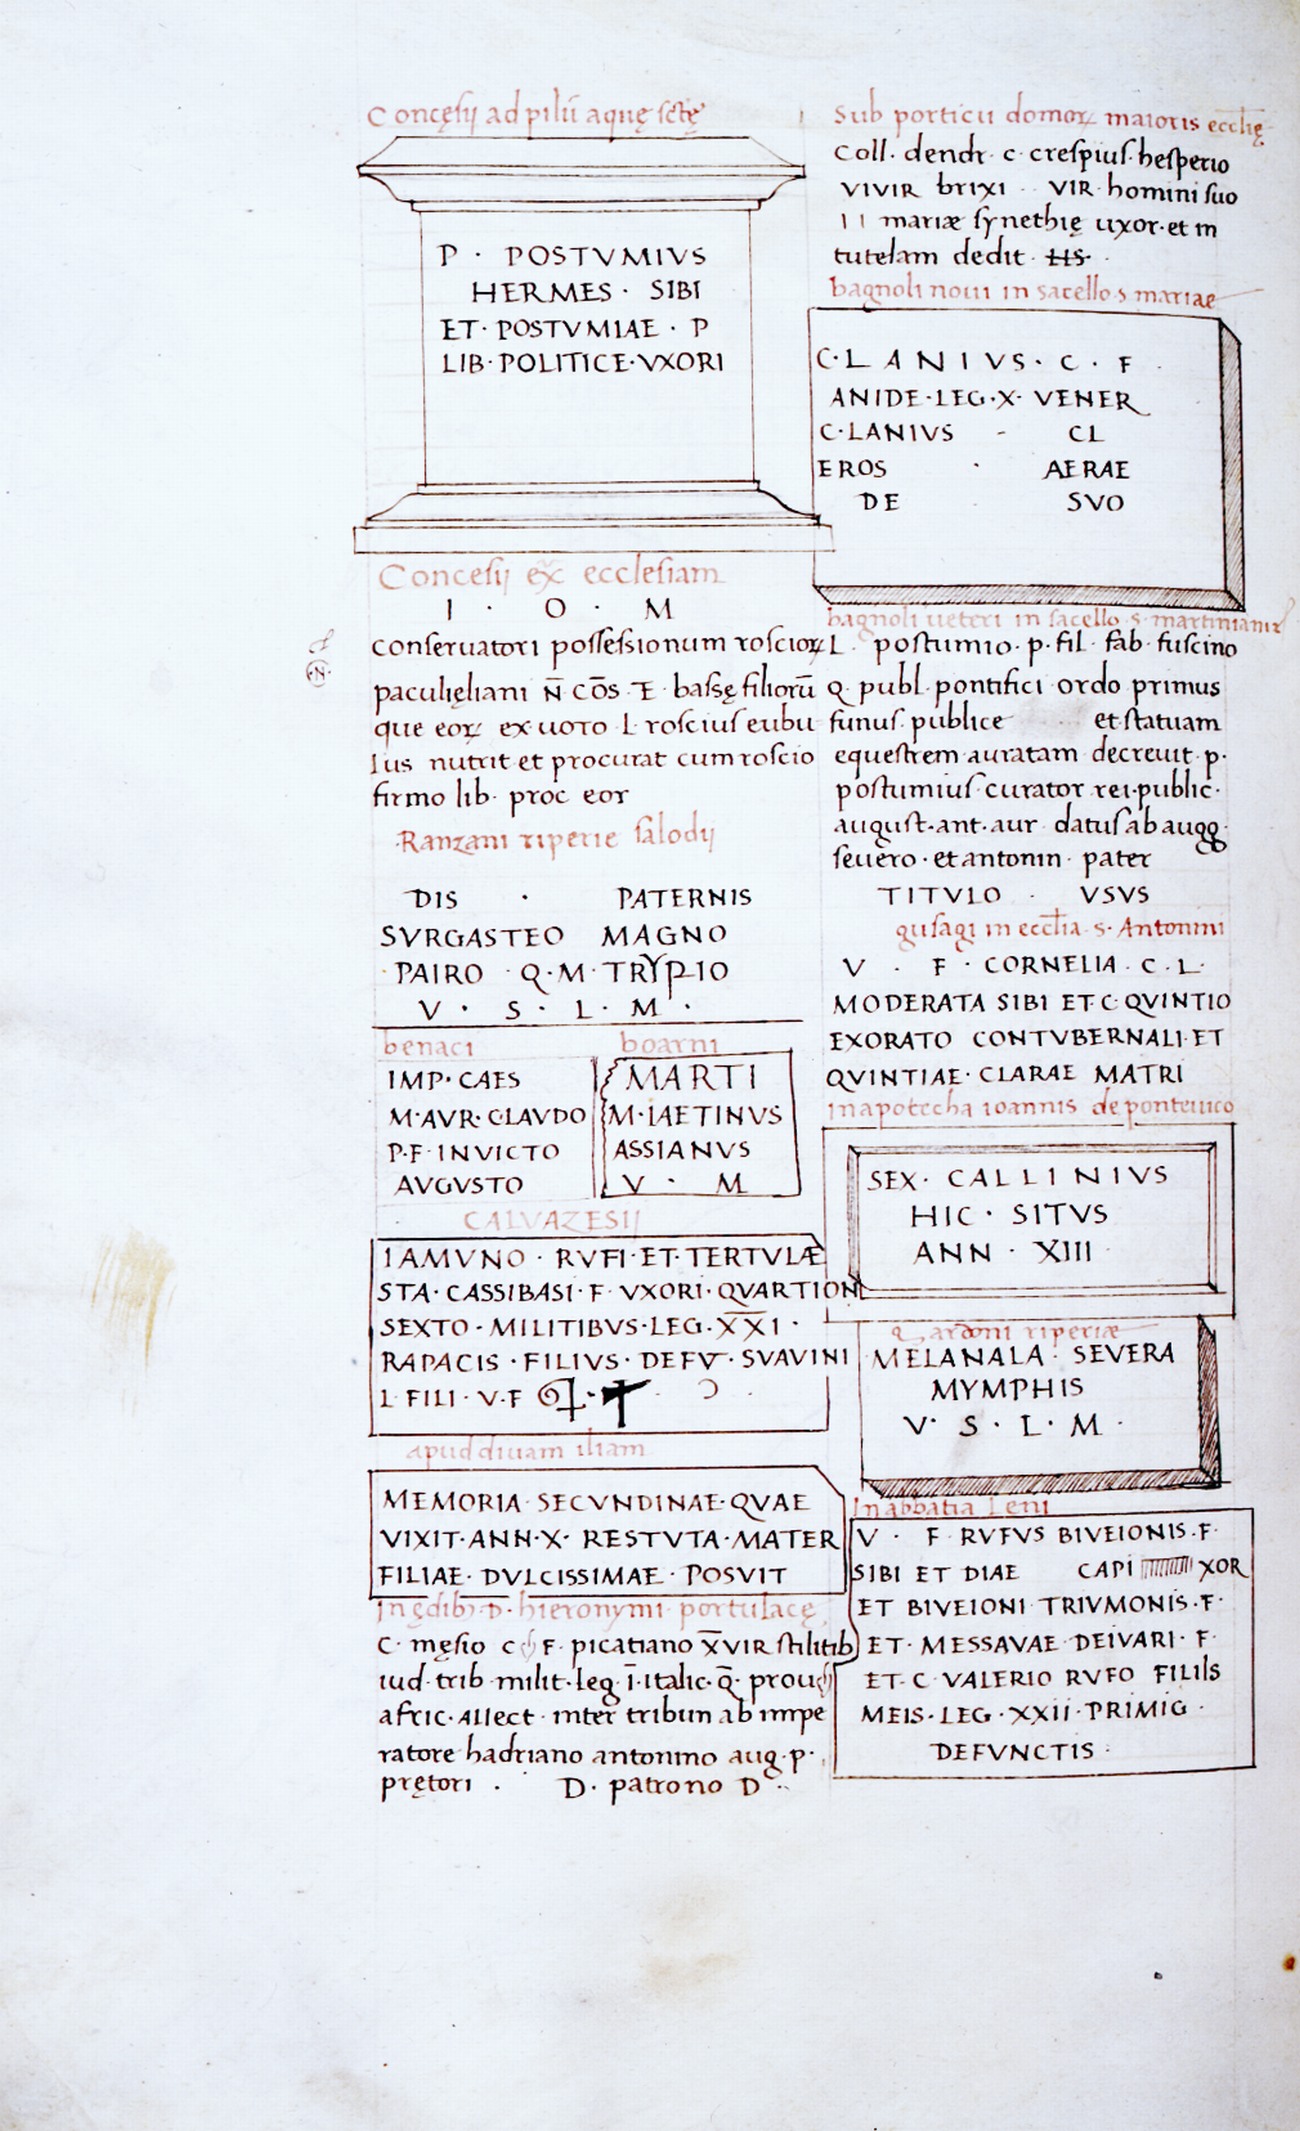 Concęsij ad pilū aquę sctę
P · POSTVMIVS
HERMES · SIBI
ET · POSTVMIAE · P
LIB · POLITICE · VXORI
Concesij ex ecclesiam
I · O · M
conseruatori possessionum roscioꝝ
paculięliani N̄ CŌS T̄ bassę filiorū
que eoꝝ ex uoto L roscius eubu
lus nutrit et procurat cum roscio
firmo lib· proc eor
Ranzani riperie salodij
DIS · PATERNIS
SVRGASTEO MAGNO
PAIRO · Q · M · TRYPIO
V · S · L · M ·
benaci
IMP · CAES
M · AVR · CLAVDO
P · F · INVICTO
AVGVSTO
boarni
MARTI
M · IAETINVS
ASSIANVS
V · M
CALVAZESIJ
IAMVNO · RVFI · ET · TERTVLÆ
STA · CASSIBASI · F · VXORI · QVARTION
SEXTO · MILITIBVS · LEG · X̄X̄I ·
RAPACIS · FILIVS · DEFV · SVAVINI
L · FILI · V · F
apud diuam iliam
MEMORIA · SECVNDINAE · QVAE
VIXIT · ANN · X · RESTVTA · MATER
FILIAE · DVLCISSIMAE · POSVIT
In ędibꝫ D· hieronymi portulacę
C · męsio C F · picatiano X̄VIR stilitib
iud · trib · milit · leg · ī · italic · q̄ · prou
afric · allect · inter tribun ab impe
ratore hadriano antonino aug · p ·
prętori · D · patrono D
Sub porticu domoꝝ maioris eccłię
Coll · dendr · c · crespius · hesperio
VIVIR brixi VIR · homini suo
I I mariæ synethię uxor · et in
tutelam dedit HS
bagnoli noui in sacello s mariae
C · LANIVS · C · F
ANIDE · LEG · X · VENER
C · LANIVS - CL
EROS · AERAE
DE SVO
bagnoli ueteri in sacello s· martiniani
L · postumio · p · fil · fab · fuscino
Q · publ · pontifici · ordo primus
funus · publice et statuam
equestrem · auratam decreuit · p ·
postumius · curator · rei · public ·
august · ant · aur datus ab augg
seuero · et antonin · pater
TITVLO · VSVS
gusagi in eccłia s· Antonini
V · F · CORNELIA · C · L ·
MODERATA SIBI ET · C · QVINTIO
EXORATO CONTVBERNALI · ET
QVINTIAE · CLARAE MATRI
in apotecha ioannis de ponteuico
SEX · CALLINIVS
HIC · SITVS
ANN · XIII
Gardoni riperiæ
MELANALA · SEVERA
MYMPHIS
V · S · L · M ·
In abbatia Leni
V · F RVFVS BIVEIONIS · F ·
SIBI ET DIAE CAPI XOR
ET BIVEIONI TRIVMONIS · F ·
ET · MESSAVAE DEIVARI · F ·
ET · C · VALERIO RVFO FILIIS
MEIS · LEG · XXII · PRIMIG ·
DEFVNCTIS ·